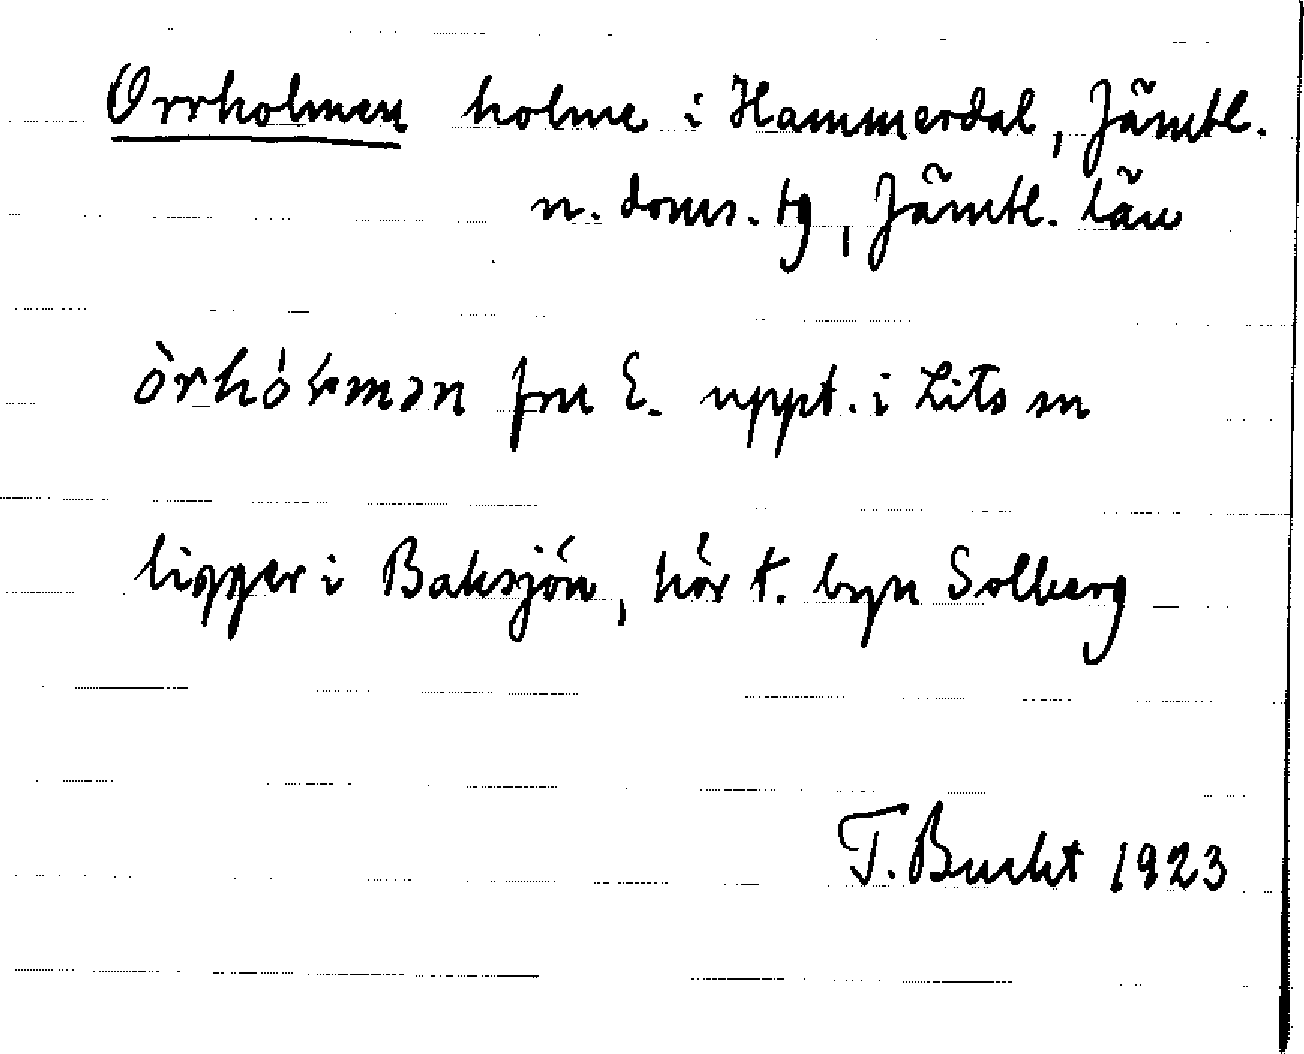 Orrholmen holme i Hammerdal, Jämtl.
n. doms. tg, Jämtl. län
òrhóɽmən fru E. uppt. i Lits sn
ligger i Baksjön, hör t. byn Solberg
T. Bucht 1923